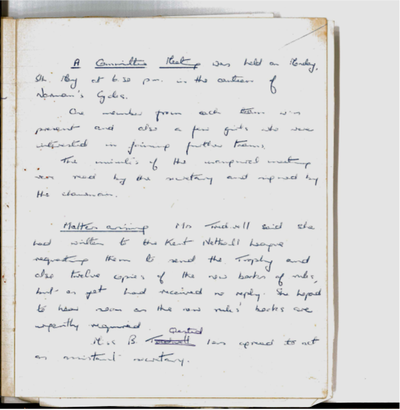 A Committee Meeting was held on Monday,
9th May at 6.30 p.m. in the canteen of
One member from each team was
present and also a few girls who were
interested in forming further teams.
The minutes of the meeting
was read by the secretary and signed by
the chairman.
Matters arising Mrs said she
had written to the Kent Netball League
requesting them to send the Trophy and
also twelve copies of the new books of rules,
but as yet had received no reply. She hoped
to hear soon as the new rules' books are
urgently required.
B was agreed to act
as assistant secretary.